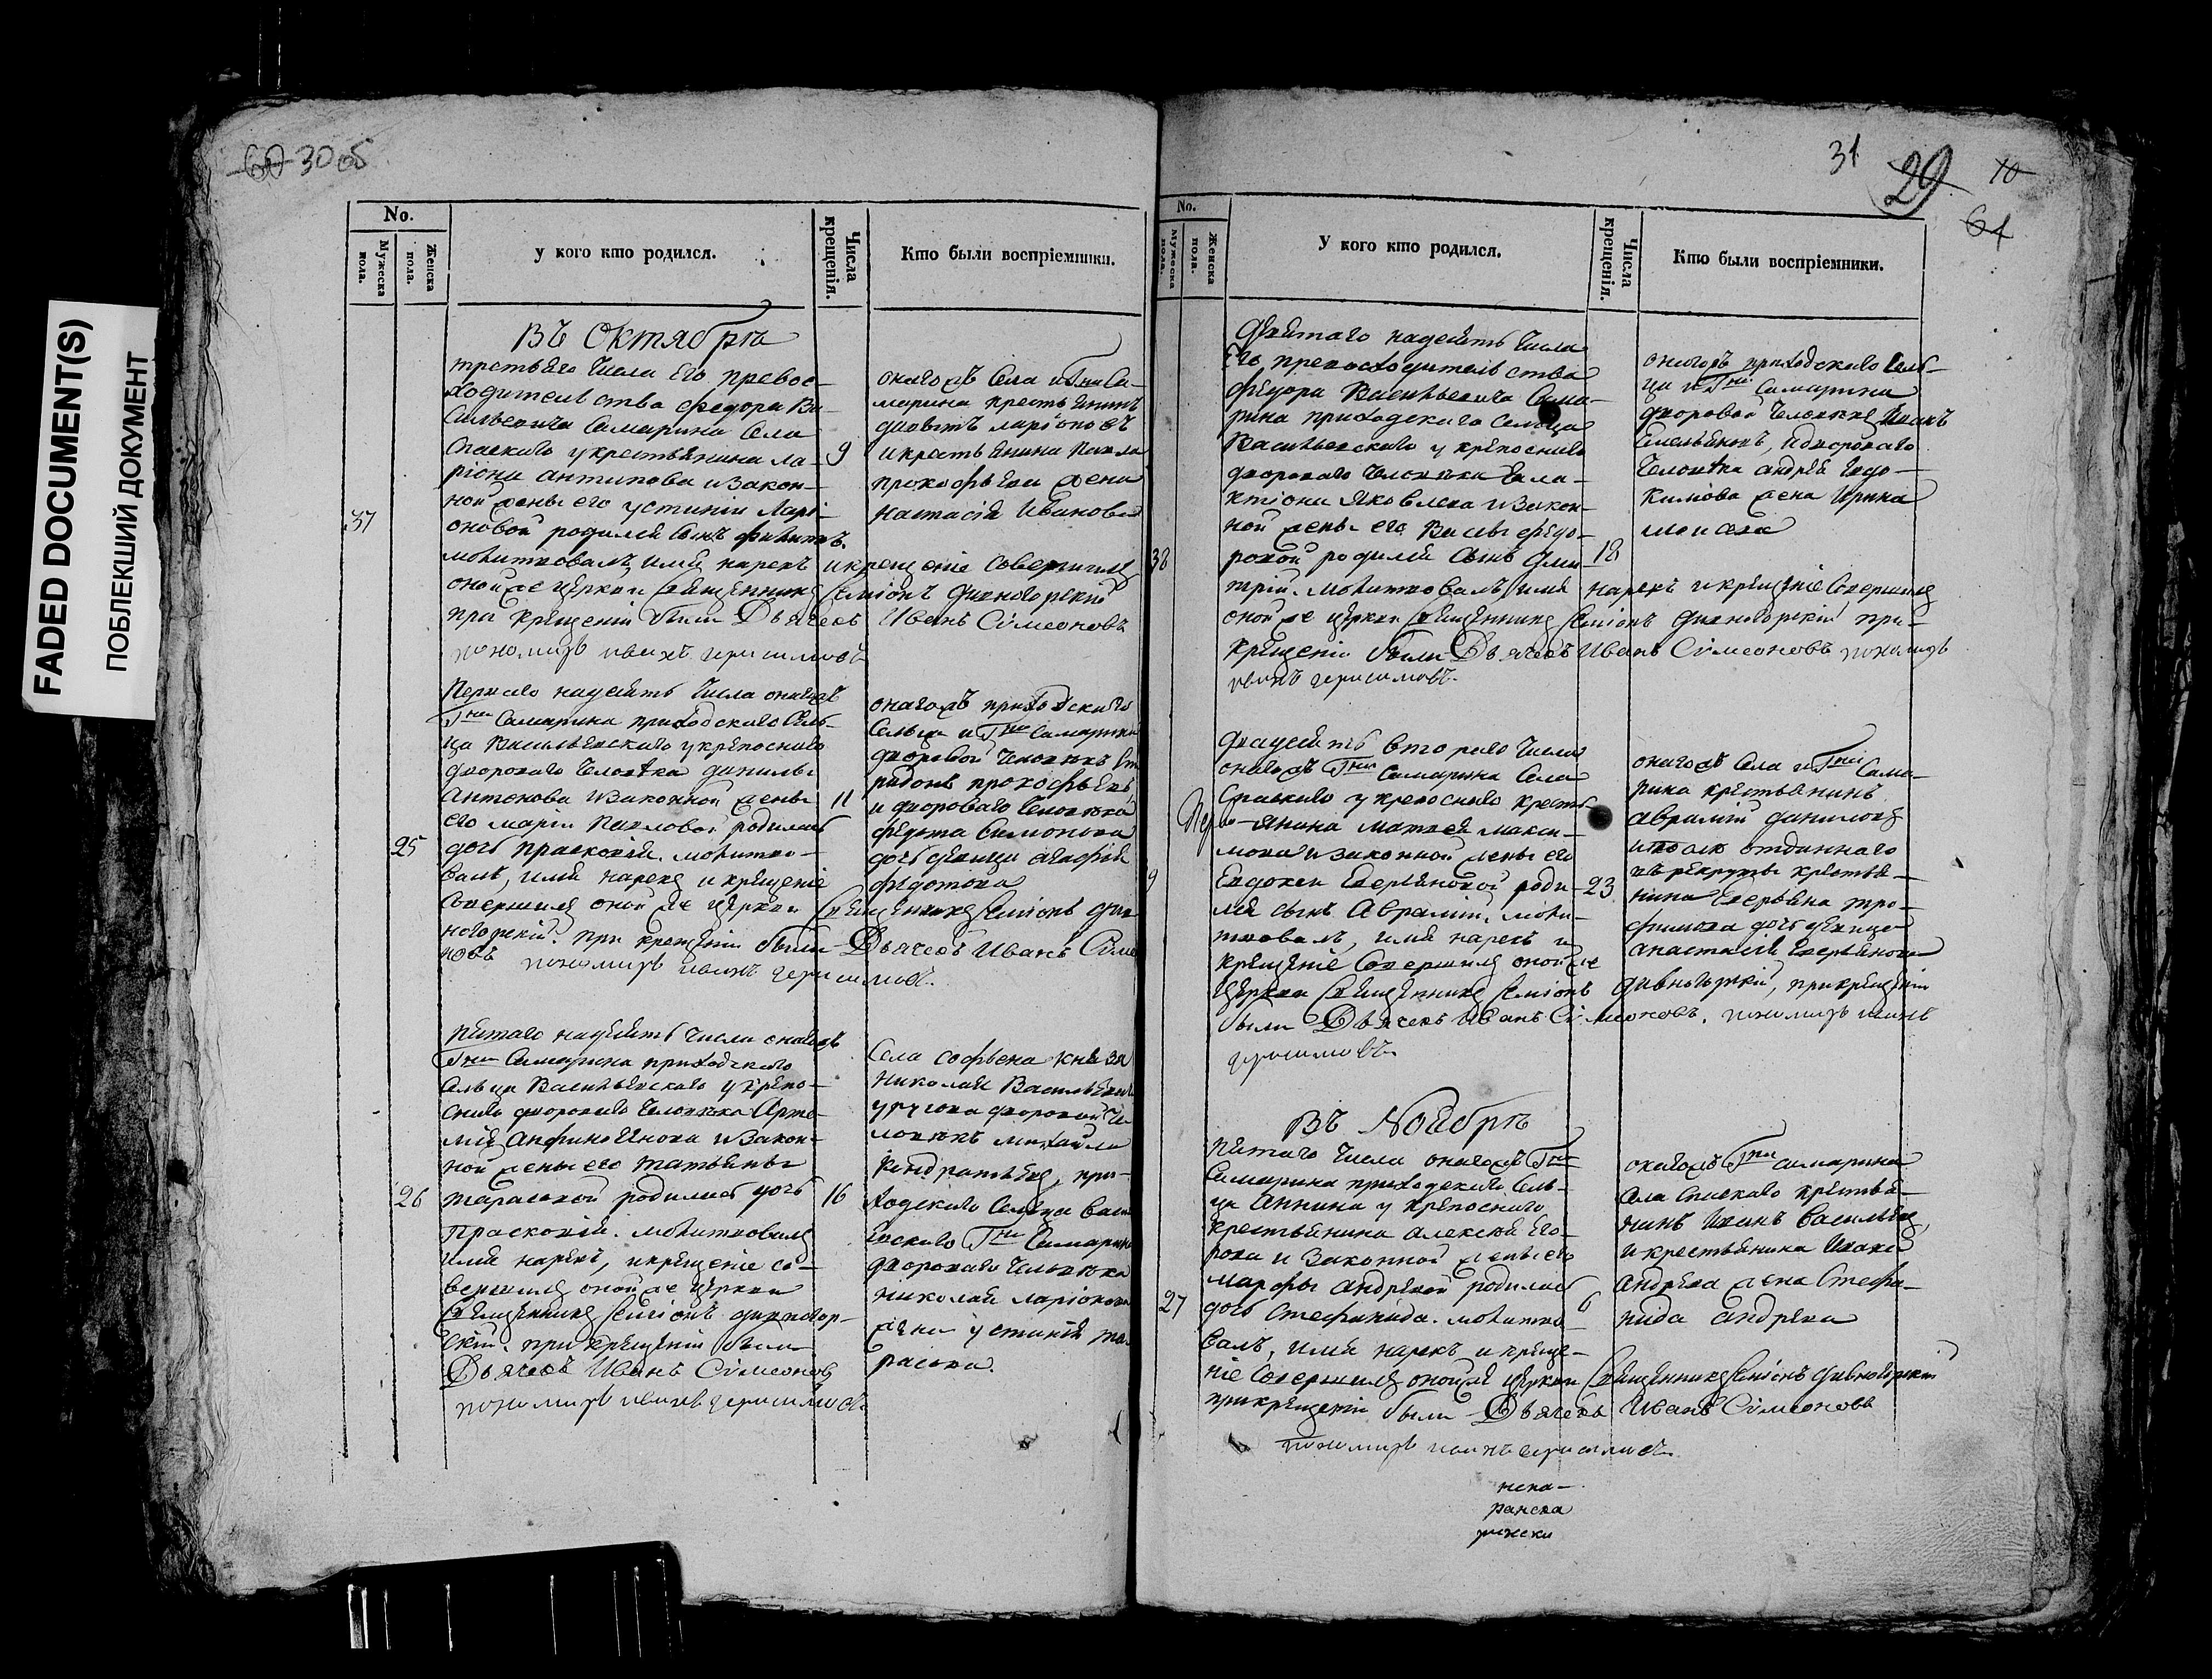 FADED DOCUMENT(S)
ПОБЛЕКШИЙ ДОКУМЕНТ
60 30 об
No.
Мужеска пола.
Женска пола.
у кого кто родился.
Числа крещенія.
Кто были воспріемники.
Въ Октябрѣ
третьяго числа его превос-
ходительства федора Ва-
сильевича Самарина Села
Спаскаго у крестьянина ла-
ріона антипова и закон-
ной жены его устиніи Ларі-
37
оновой родился сынъ
молитвовалъ имя нарекъ и крещеніе совершилъ
оной же церкви священникъ Симіонъ дивногорскій
при крещеніи были Дьячекъ Иванъ Сімеоновъ
пономарь иванъ герасимовъ
9
онагожъ Села и Гна Са-
марина крестьянинъ
ларіоновъ
и крестьянина Павла
прокофьева жена
настасія Иванова
Перваго надесять числа онагожъ
Гна Самарина приходскаго Сель-
ца Васильевскаго у крепоснаго
двороваго человѣка данилы
Антонова и законной жены
его марьи Павловой родилась
25
дочь прасковія. молитво-
валъ, имя нарекъ и крещеніе
совершилъ оной же церкви священникъ Симіонъ див-
ногорскій. при крещеніи были Дьячекъ Иванъ Сіме-
новъ пономарь иванъ герасимовъ.
11
онагожъ приходскаго
Сельца и Гна Самарина
дворовой человѣкъ
прокофьевъ
и двороваго человѣка
федота Симонова
дочь девица
федотова
Пятаго надесять числа онагожъ
Гна Самарина приходскаго
Сельца Васильевскаго у крепо-
снаго двороваго человѣка Арте-
мія и закон-
ной жены его татьяны
26
тарасовой родилась дочь
Прасковія. молитвовалъ
имя нарекъ, и крещеніе со-
вершилъ оной же церкви
Священникъ Симіонъ дивногор-
скій. при крещеніи были
Дьячекъ Иванъ Сімеоновъ
пономарь иванъ герасимовъ
16
Села софьена князя
николая Васильевича
дворовой че-
ловѣкъ михайла
Кондратьевъ, при-
ходскаго сельца Васи
евскаго Гна Самарина
двороваго человѣка
николая ларіонова
жена устинія та-
расова.
31 29 10
61
No.
Мужеска пола.
Женска пола.
У кого кто родился.
Числа крещенія.
Кто были воспріемники.
девятаго надесять числа
Его превосходительства
федора Васильевича Сама-
рина приходскаго сельца
Васильевскаго у крепоснаго
двороваго человѣка Гала-
ктіона Яковлева и закон-
ной жены его Васы федо-
38
ровой родился сынъ Дми-
трій. молитвовалъ имя нарекъ и крещеніе совершилъ
оной же церкви священникъ Симіонъ дивногорскій при-
крещеніи были Дьячекъ Иванъ Сімеоновъ пономарь
иванъ герасимовъ.
18
онагожъ приходскаго сель-
ца и Гна Самарина
дворовой человѣкъ Иванъ
Емельяновъ, и двороваго
человѣка андрея Евдо-
кимова жена Ирина
двадесять втораго числа
онагожъ Гна Самарина Села
Спаскаго у крепоснаго кресть-
янина матвея макси-
мова и законной жены его
9
Евдокеи родил-
ся сынъ Аврамій. моли-
твовалъ, имя нарекъ и
крещеніе совершилъ оной же
Церкви священникъ Симіонъ дивногорскій, при крещеніи
были Дьячекъ Иванъ Сімеоновъ. пономарь иванъ
герасимовъ
23
онагожъ Села и Гна Сама-
рина крестьянинъ
аврамій даниловъ
отданнаго
въ рекруты крестья-
нина тро-
фимова дочь девица
анастасія
Въ Ноябрѣ
пятаго числа онагожъ Гна
Самарина приходскаго Сель-
ца Аннина у крепоснаго
крестьянина алексея Его-
рова и законной жены его
марфы андревой родилась
27
дочь Стефанида. молитво-
валъ, имя нарекъ и креще-
ніе совершилъ оной же церкви священникъ Симіонъ дивногорскій
при крещеніи были Дьячекъ Иванъ Сімеоновъ
пономарь иванъ герасимовъ.
6
онагожъ Гна самарина
Села Спаскаго крестья-
нинъ Иванъ Васильевъ,
и крестьянина Ивана
андрева жена Стефа-
нида андрева